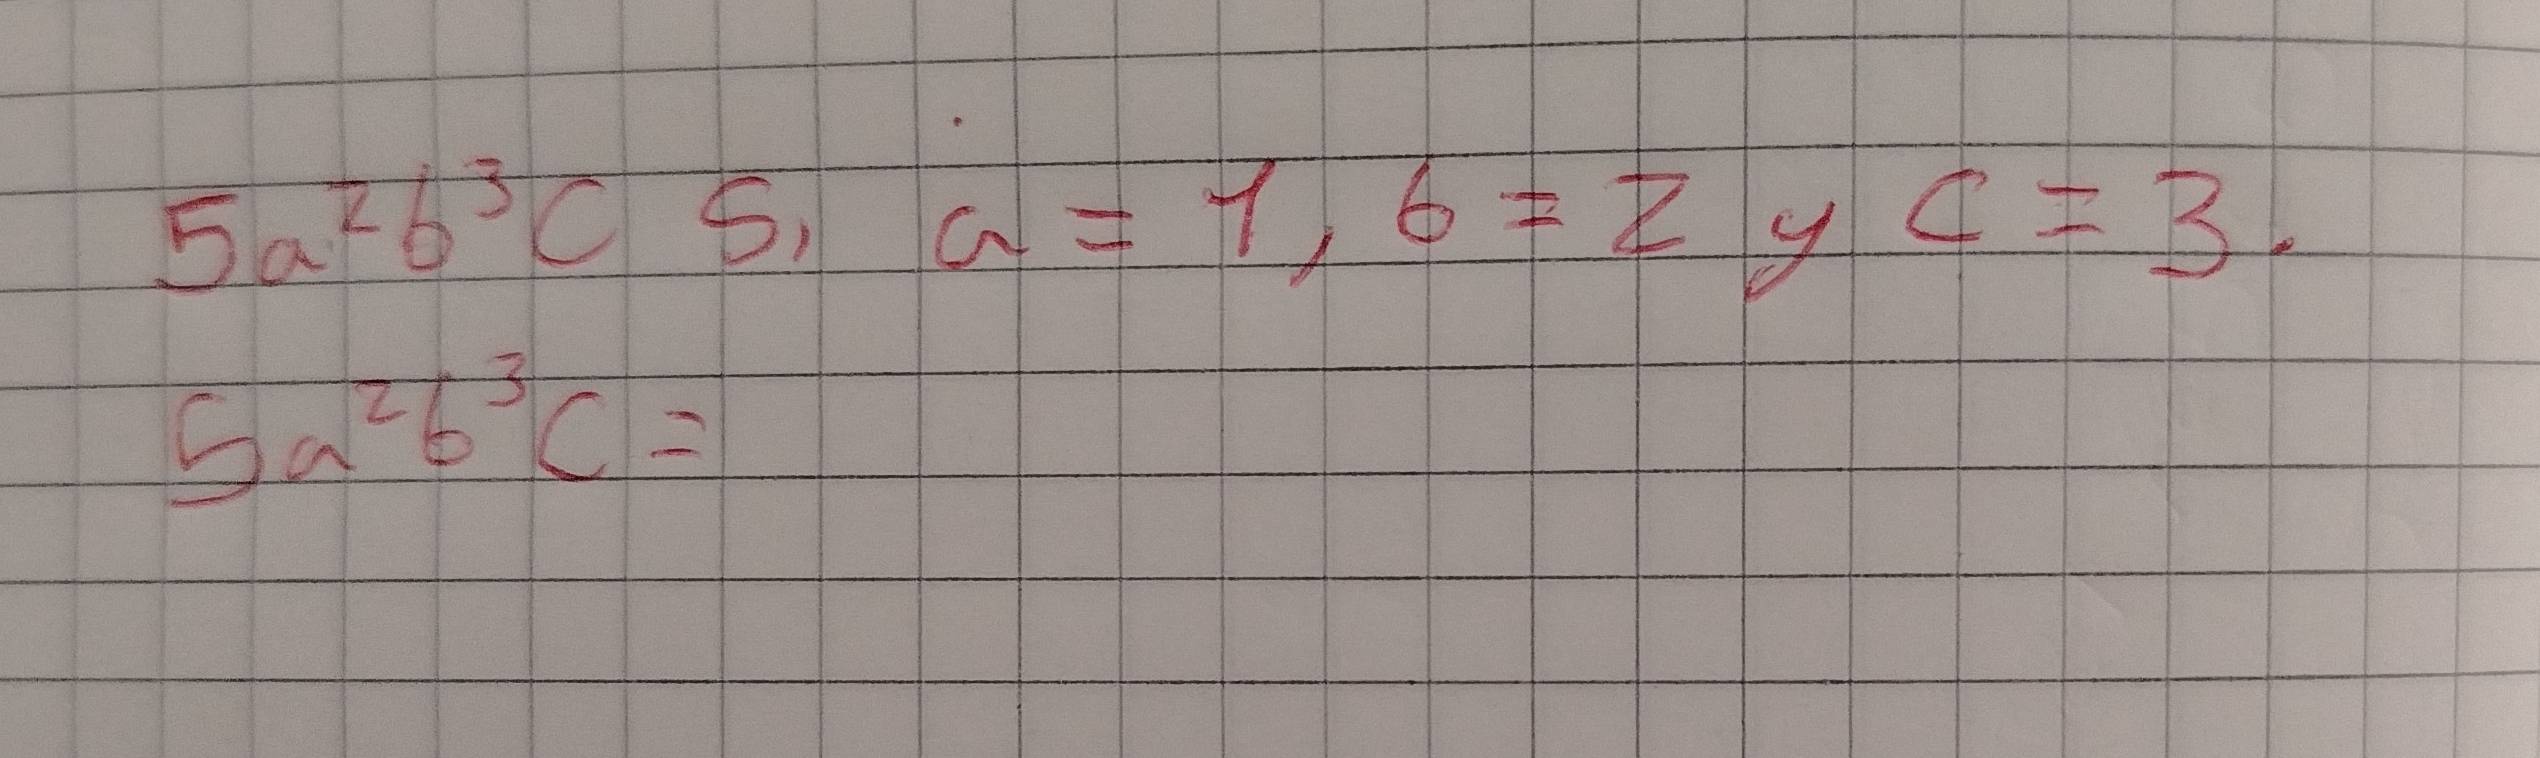 5a²b³C Si a = 1, b = 2 y C = 3.
5a²b³C =